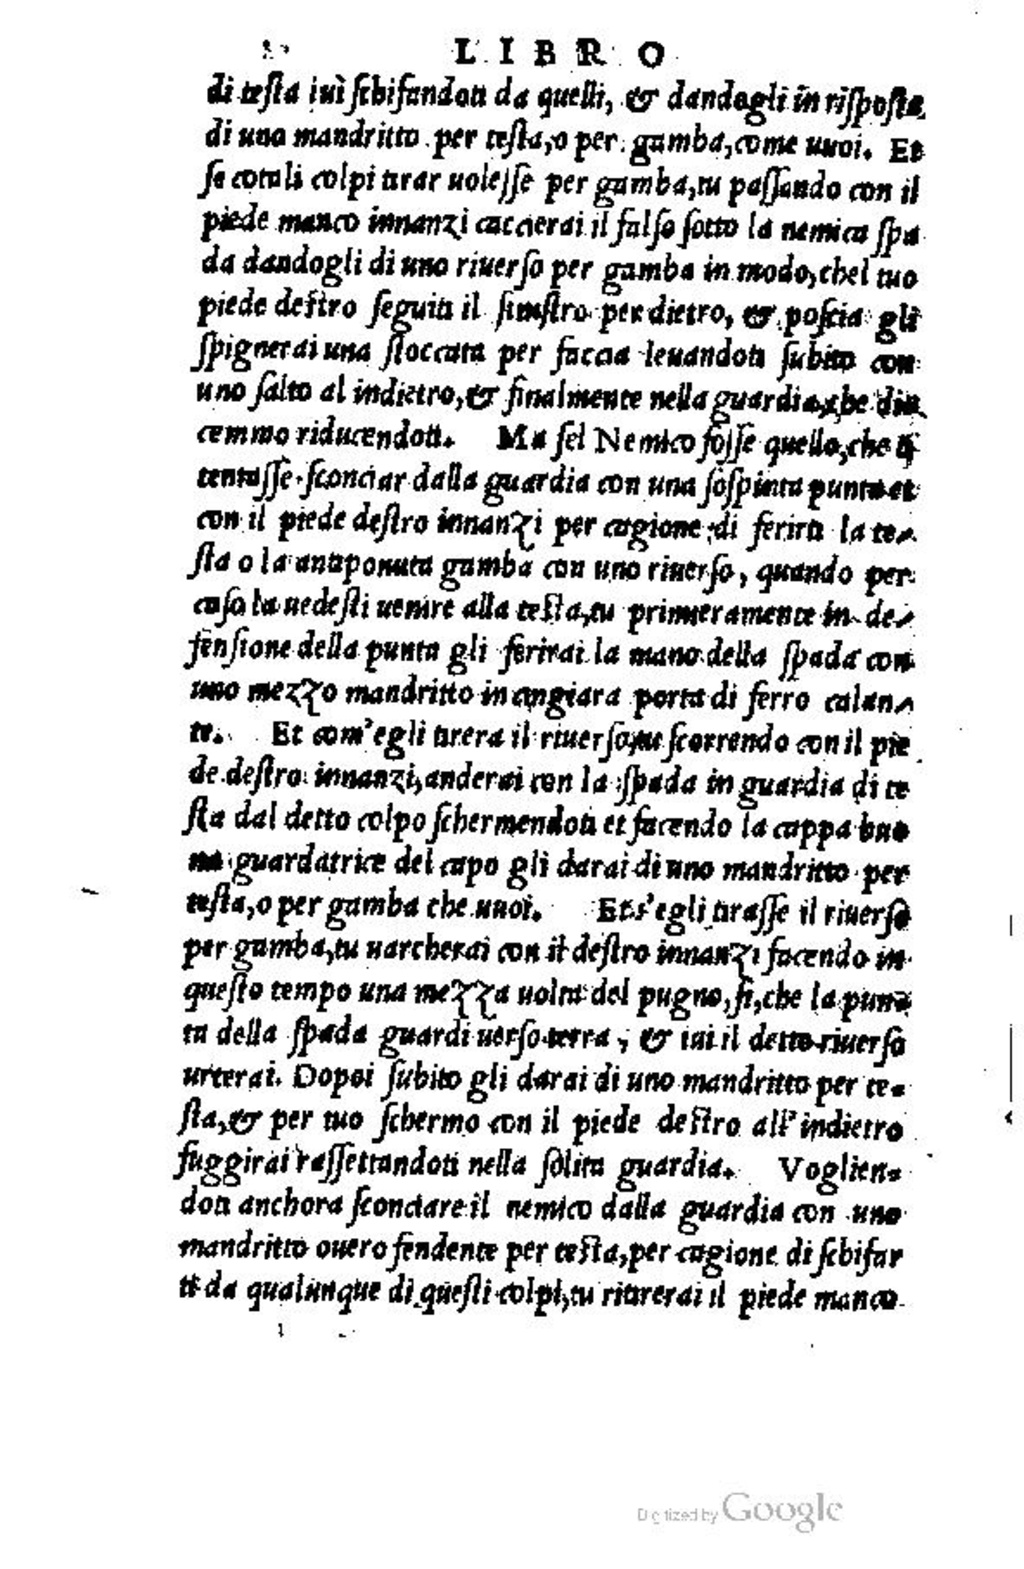 LIBRO
di testa iui schifandoti da quelli, & dandogli in risposta
di uno mandritto per testa, o per gamba, come uuoi. Et
se cotali colpi tirar uolesse per gamba, tu passando con il
piede manco innanzi caccierai il falso sotto la nemica spa
da dandogli di uno riuerso per gamba in modo, chel tuo
piede destro seguiti il sinistro per dietro, & poscia gli
spignerai una stoccata per faccia leuandoti subito con
uno salto al indietro, & finalmente nella guardia, che di
cemmo riducendoti. Ma sel Nemico fosse quello, che ti
tentasse sconciar dalla guardia con una sospinta punta et
con il piede destro innanzi per cagione di ferirti la te-
sta o la antiponuta gamba con uno riuerso, quando per
caso la uedesti uenire alla testa, tu primieramente in de-
fensione della punta gli ferirai la mano della spada con
uno mezzo mandritto in cingiara porta di ferro calan-
te. Et com'egli tirera il riuerso, tu scorrendo con il pie
de destro innanzi, anderai con la spada in guardia di te
sta dal detto colpo schermendoti et facendo la cappa buo
na guardatrice del capo gli darai di uno mandritto per
testa, o per gamba che uuoi. Et s'egli tirasse il riuerso
per gamba, tu uarcherai con il destro innanzi facendo in
questo tempo una mezza uolta del pugno, si, che la pun-
ta della spada guardi uerso terra, & iui il detto riuerso
urterai. Dopoi subito gli darai di uno mandritto per te-
sta, & per tuo schermo con il piede destro all'indietro
fuggirai rassettandoti nella solita guardia. Voglien-
doti anchora sconciare il nemico dalla guardia con uno
mandritto ouero fendente per testa, per cagione di schifar
ti da qualunque di questi colpi, tu ritirerai il piede manco
Digitized by Google